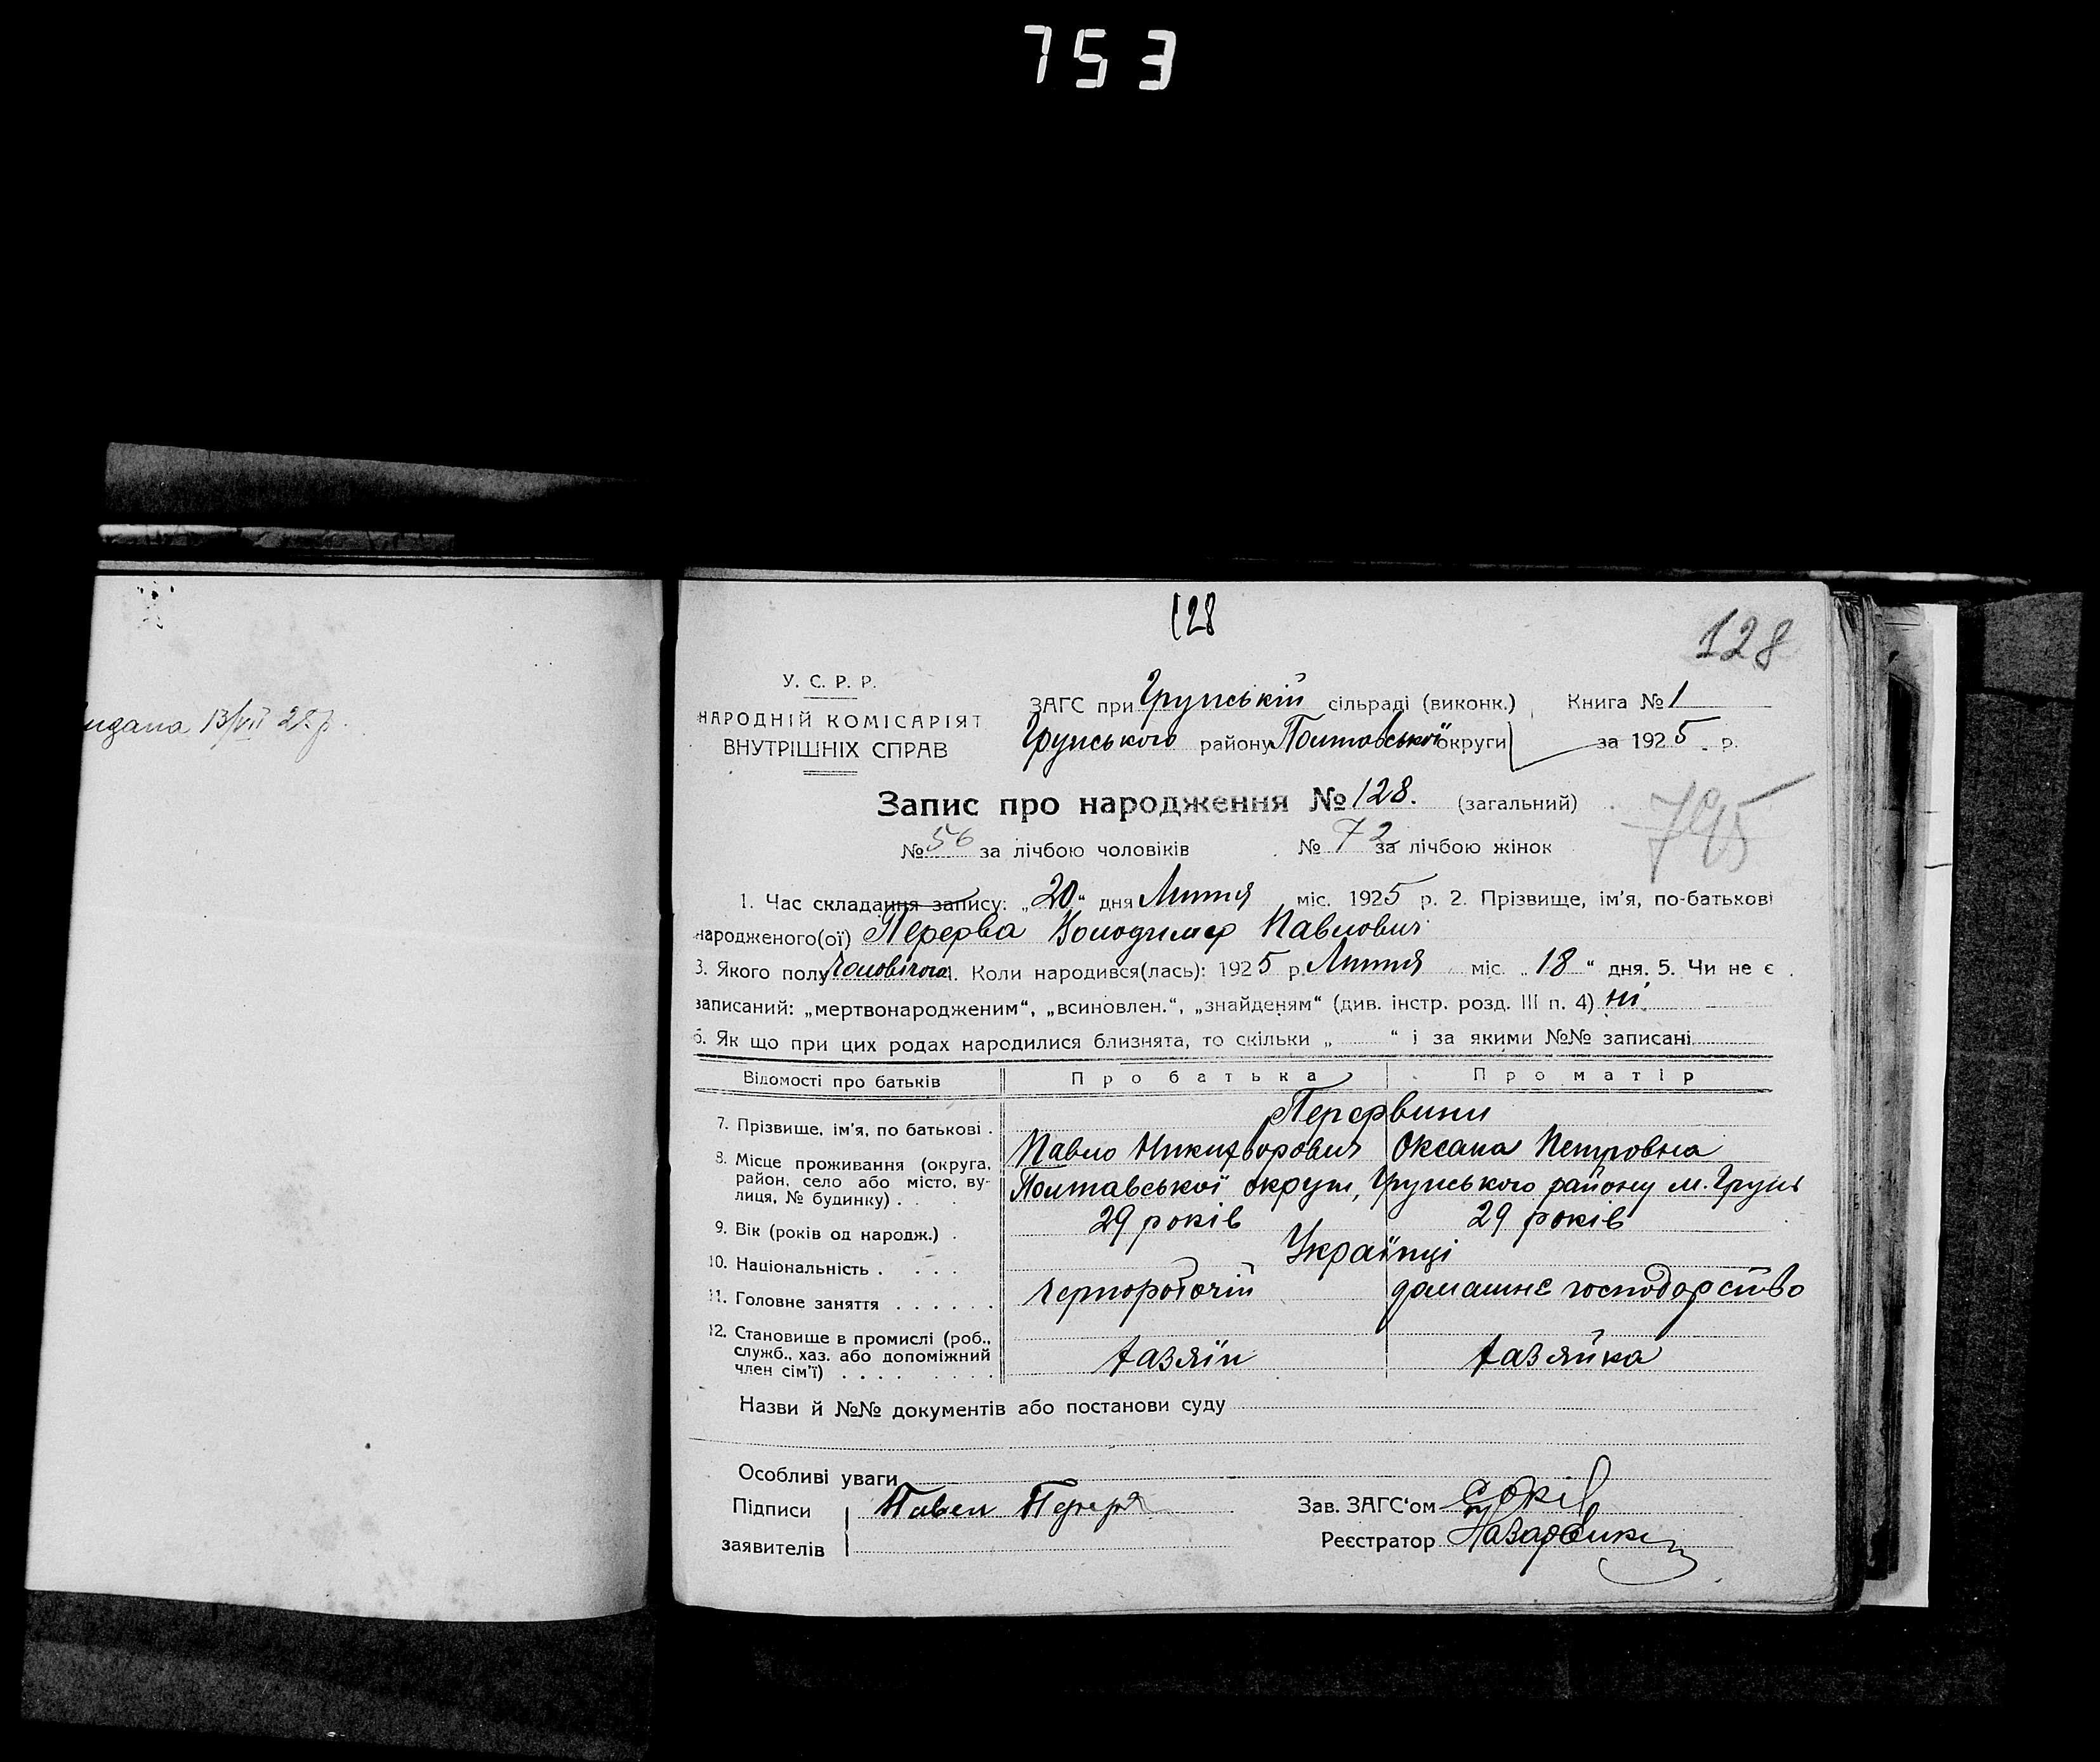 753
128
128
видана 13/VII 29 р.
У. С. Р. Р.
НАРОДНІЙ КОМІСАРІЯТ
ВНУТРІШНІХ СПРАВ
ЗАГС при Грунській сільраді (виконк.) Книга № 1
Грунського району Полтавської округи за 1925 р.
Запис про народження № 128. (загальний)
795
№ 56 за лічбою чоловіків № 72 за лічбою жінок
1. Час складання запису: „20“ дня Липня міс. 1925 р. 2. Прізвище, ім'я, по-батькові
народженого(ої) Перерва Володимер Павлович
3. Якого полу Чоловічого 4. Коли народився(лась): 1925 р. Липня міс. „18“ дня. 5. Чи не є
записаний: „мертвонародженим“, „всиновлен.“, „знайденям“ (див. інстр. розд. III п. 4) ні
6. Як що при цих родах народилися близнята, то скільки „ “ і за якими №№ записані
Відомості про батьків Про батька Про матір
Перервини
7. Прізвище, ім'я, по батькові . Павло Никифорович Оксана Петровна
8. Місце проживання (округа, район, село або місто, вулиця, № будинку) . . Полтавської округи, Грунського району м. Грунь
9. Вік (років од народж.) . 29 років 29 років
10. Національність . . . . Українці
11. Головне заняття . . . . . . чорноробочій домашнє господарство
12. Становище в промислі (роб., служб., хаз. або допоміжний член сім'ї) . . . . . . . . хазяїн хазяйка
Назви й №№ документів або постанови суду
Особливі уваги
Підписи Павел Зав. ЗАГС'ом
заявителів Реєстратор